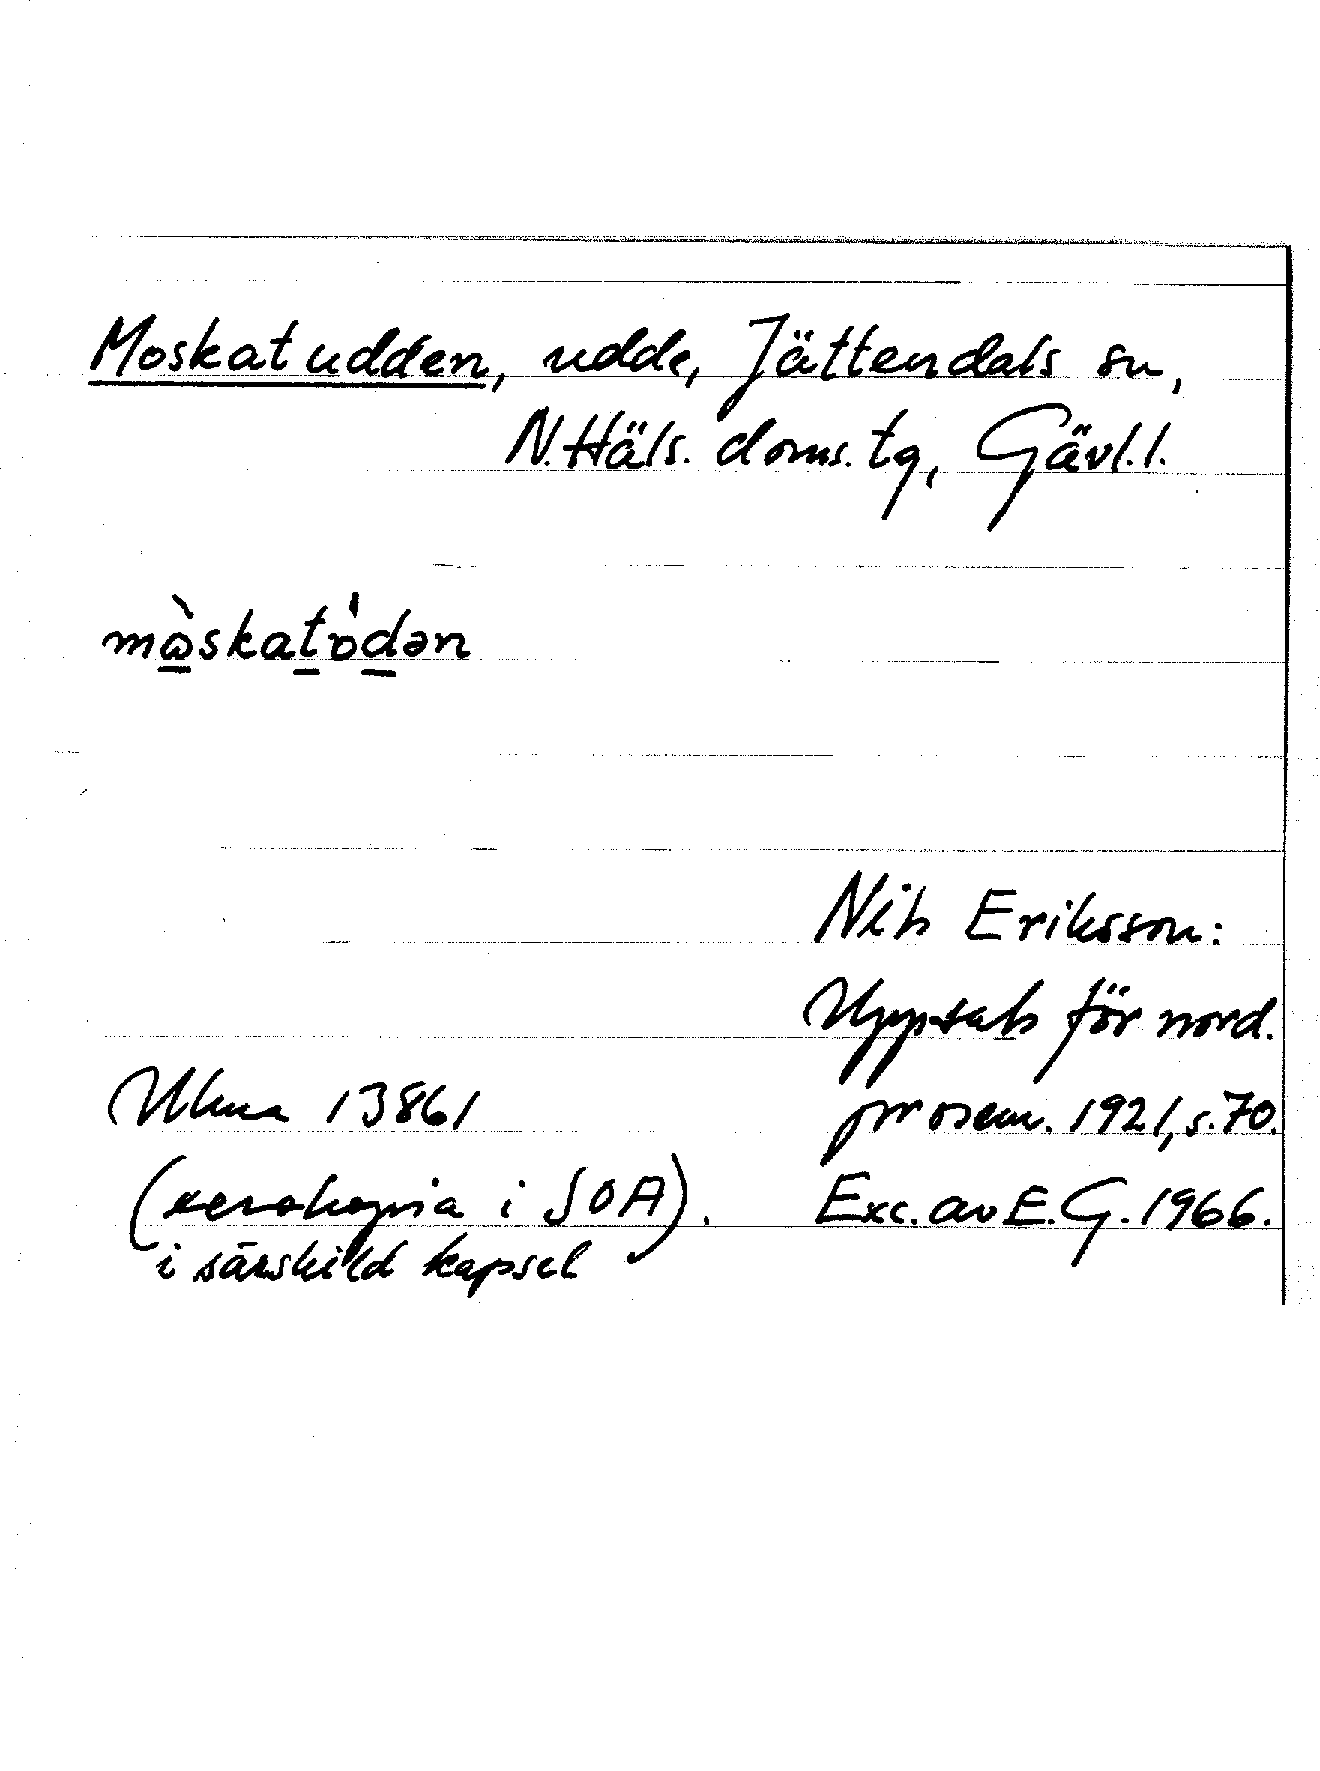 Moskatudden, udde, Jättendals sn,
N. Häls. doms. tg, Gävl. l.
mωskatödən
Nils Eriksson:
Uppsats för nord.
Ulma 13861 prosem. 1921, s. 70.
(xerokopia i SOA). Exc. av E. G. 1966.
i särskild kapsel